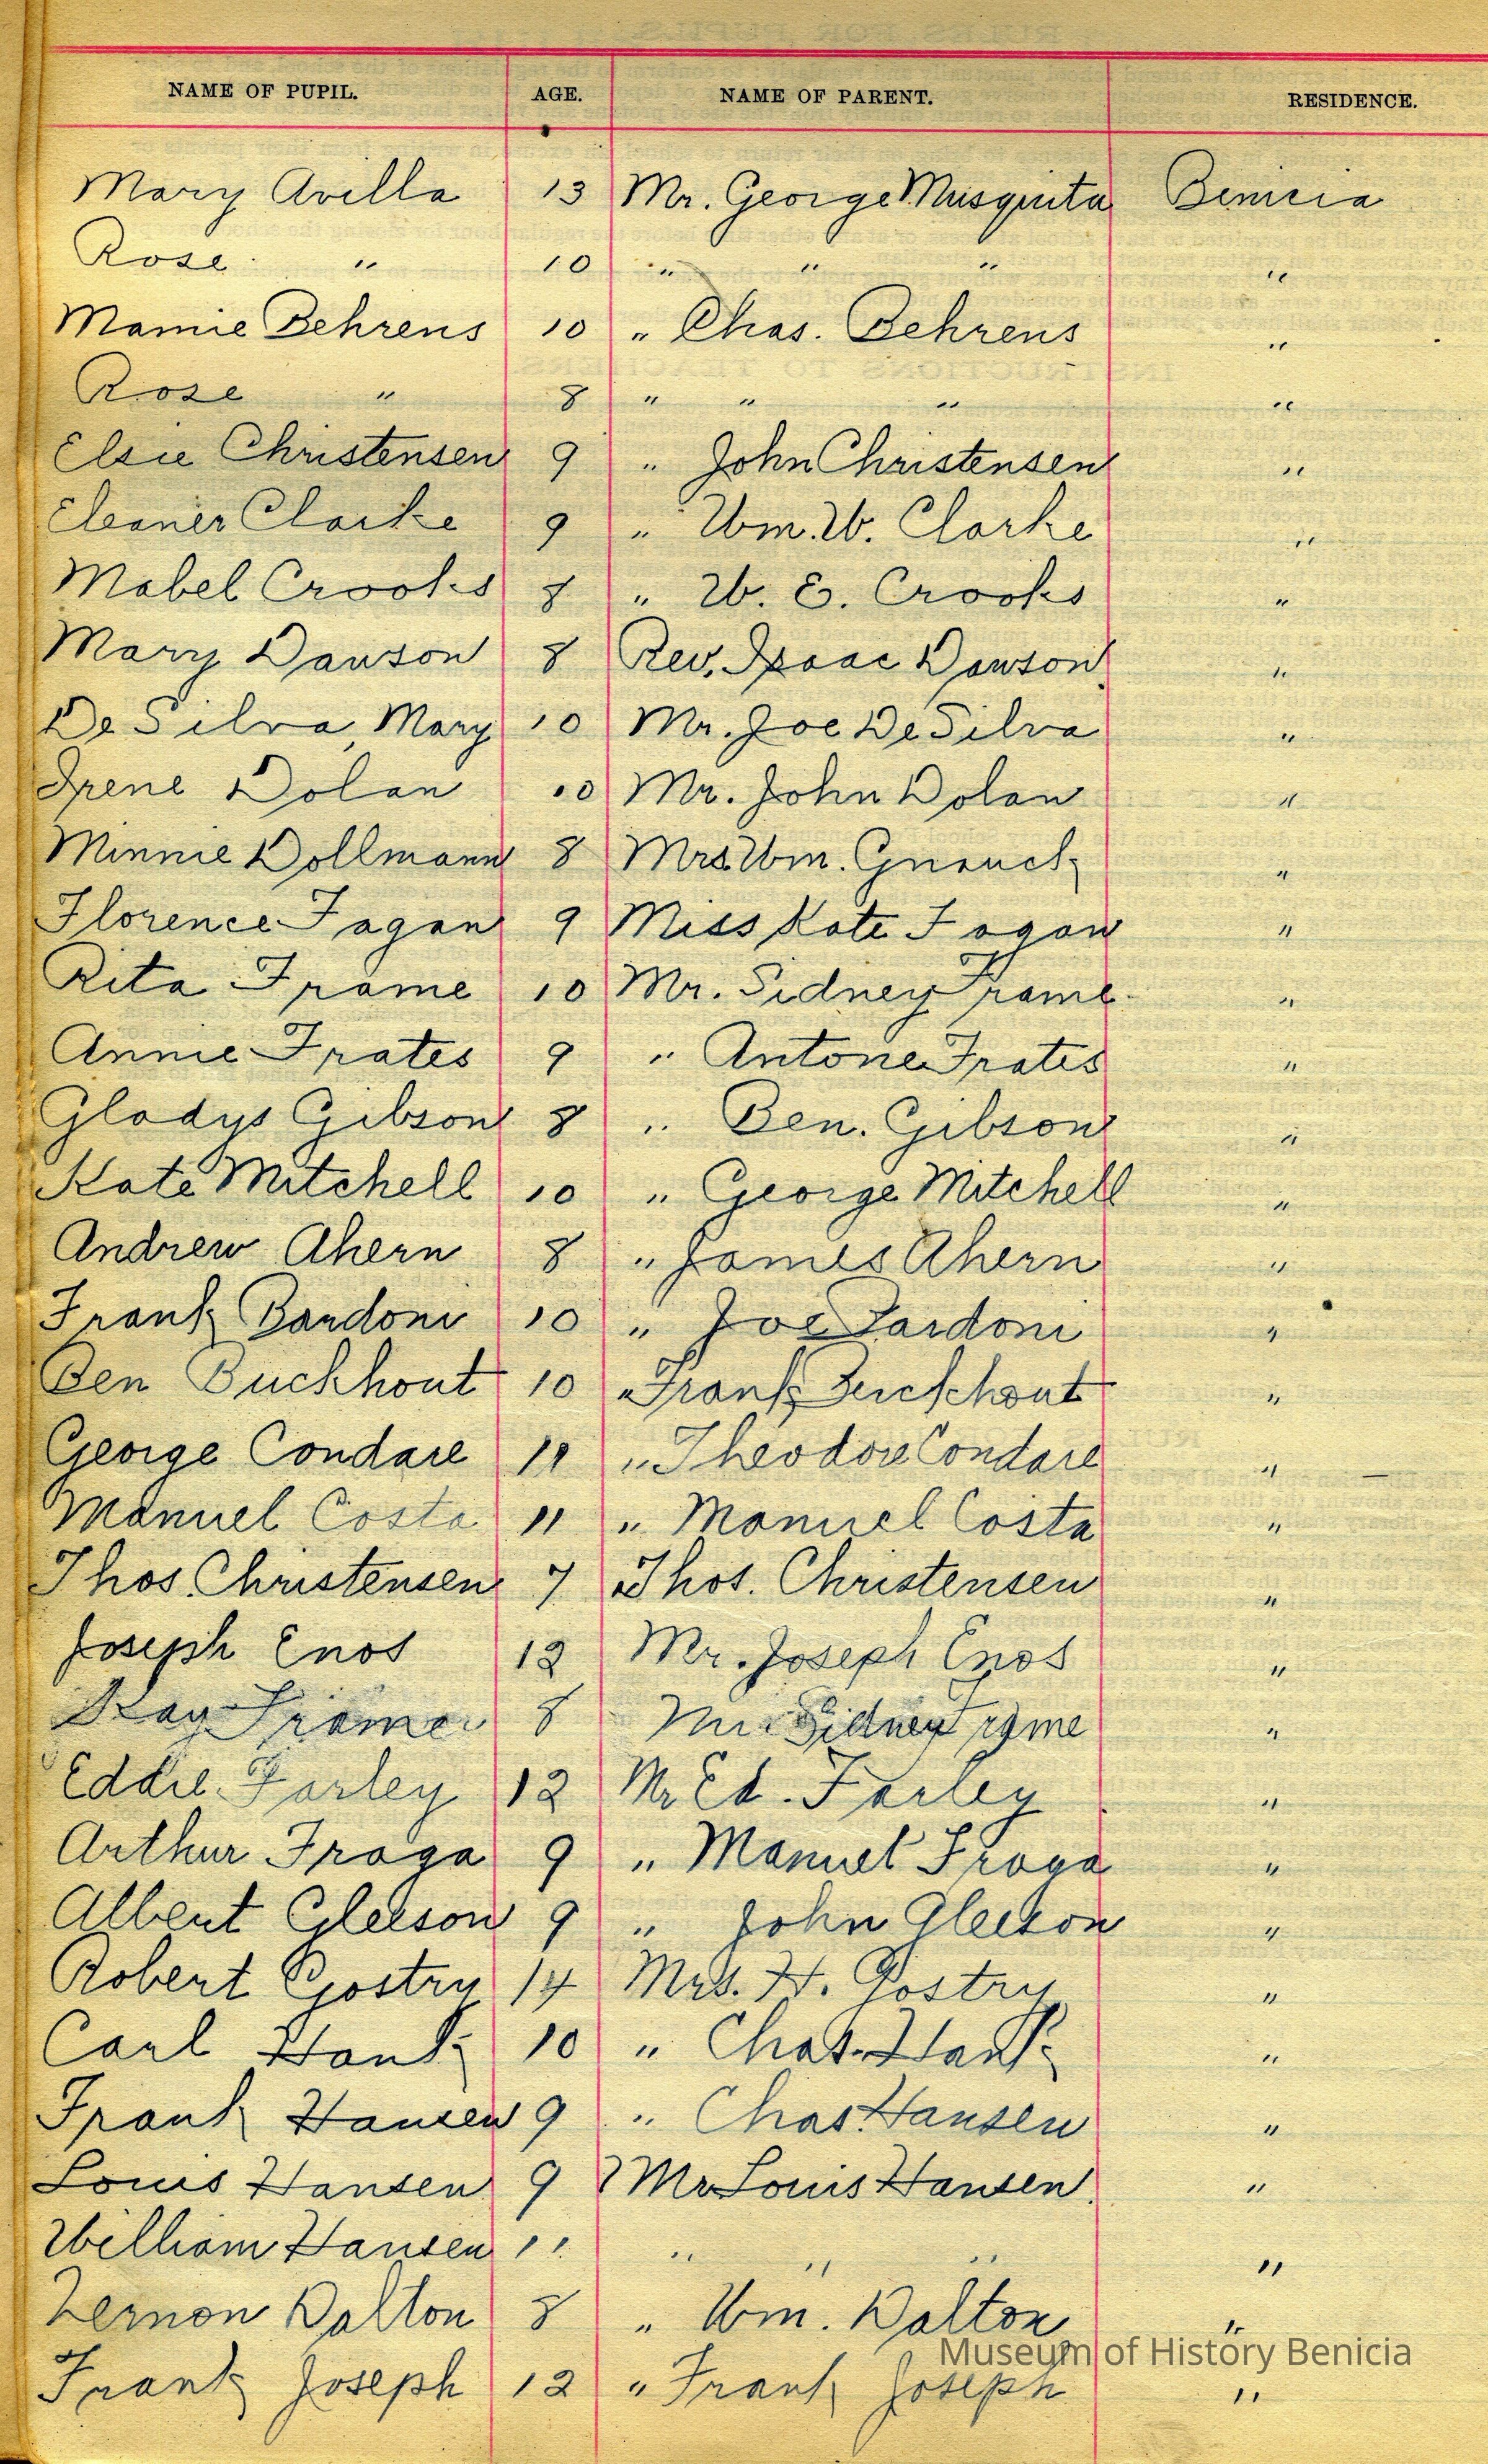 NAME OF PUPIL. AGE. NAME OF PARENT. RESIDENCE.
Mary Avilla 13 Mr. George Musquita Benicia
Rose " 10 " " " "
Mamie Behrens 10 " Chas. Behrens "
Rose " 8 " " " "
Elsie Christensen 9 " John Christensen "
Eleanor Clarke 9 " Wm. W. Clarke "
Mabel Crooks 8 " W. E. Crooks "
Mary Dawson 8 Rev. Isaac Dawson "
De Silva, Mary 10 Mr. Joe De Silva "
Irene Dolan 10 Mr. John Dolan "
Minnie Dollmann 8 Mrs Wm. Gnauck "
Florence Fagan 9 Miss Kate Fagan "
Rita Frame 10 Mr. Sidney Frame "
Annie Frates 9 " Antone Frates "
Gladys Gibson 8 " Ben. Gibson "
Kate Mitchell 10 " George Mitchell "
Andrew Ahern 8 " James Ahern "
Frank Bardoni 10 " Joe Bardoni "
Ben Buckhout 10 " Frank Buckhout "
George Condare 11 " Theodore Condare "
Manuel Costa 11 " Manuel Costa "
Thos. Christensen 7 " Thos. Christensen "
Joseph Enos 12 Mr. Joseph Enos "
Ray Frame 8 Mr. Sidney Frame "
Eddie Farley 12 Mr Ed. Farley "
Arthur Fraga 9 " Manuel Fraga "
Albert Gleeson 9 " John Gleeson "
Robert Gostry 14 Mrs. H. Gostry "
Carl Hank 10 " Chas. Hank "
Frank Hansen 9 " Chas. Hansen "
Louis Hansen 9 Mr Louis Hansen "
William Hansen 11 " " " "
Vernon Dalton 8 " Wm. Dalton "
Museum of History Benicia
Frank Joseph 12 " Frank Joseph "